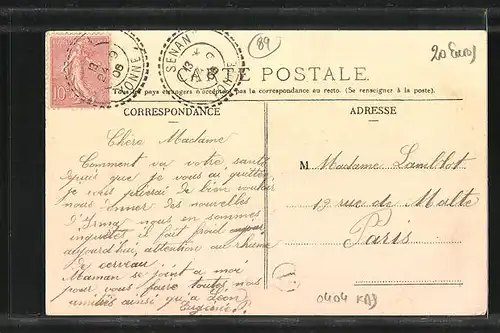 SENAN
YONNE
89
20 Euro
10
CARTE POSTALE
Tous les pays étrangers n'acceptent pas la correspondance au recto. (Se renseigner à la poste).
CORRESPONDANCE
ADRESSE
Chère Madame
Comment va votre santé
depuis que je vous ai quittée
je vous prierai de bien vouloir
nous donner des nouvelles
d'Irma nous en sommes
inquiètes il fait froid
aujourd'hui, attention au rhume
de cerveau.
Maman se joint a moi
pour vous faire toutes nos
amitiés ainsi qu'a Léon
Eugénie
M Madame
19 rue de Malte
Paris
0404